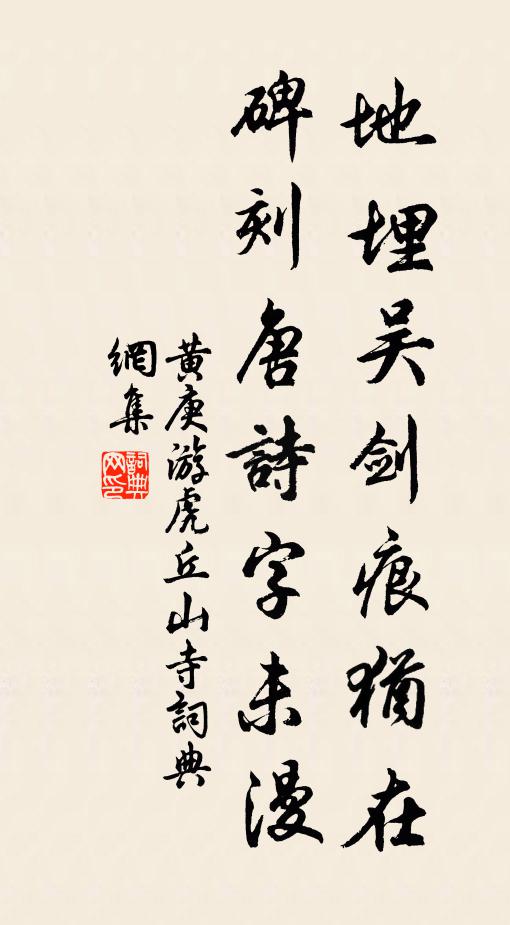 地埋吴剑痕猶在
碑刻唐詩字未漫
黄庚游虎丘山寺詞典
網集
詞典网印